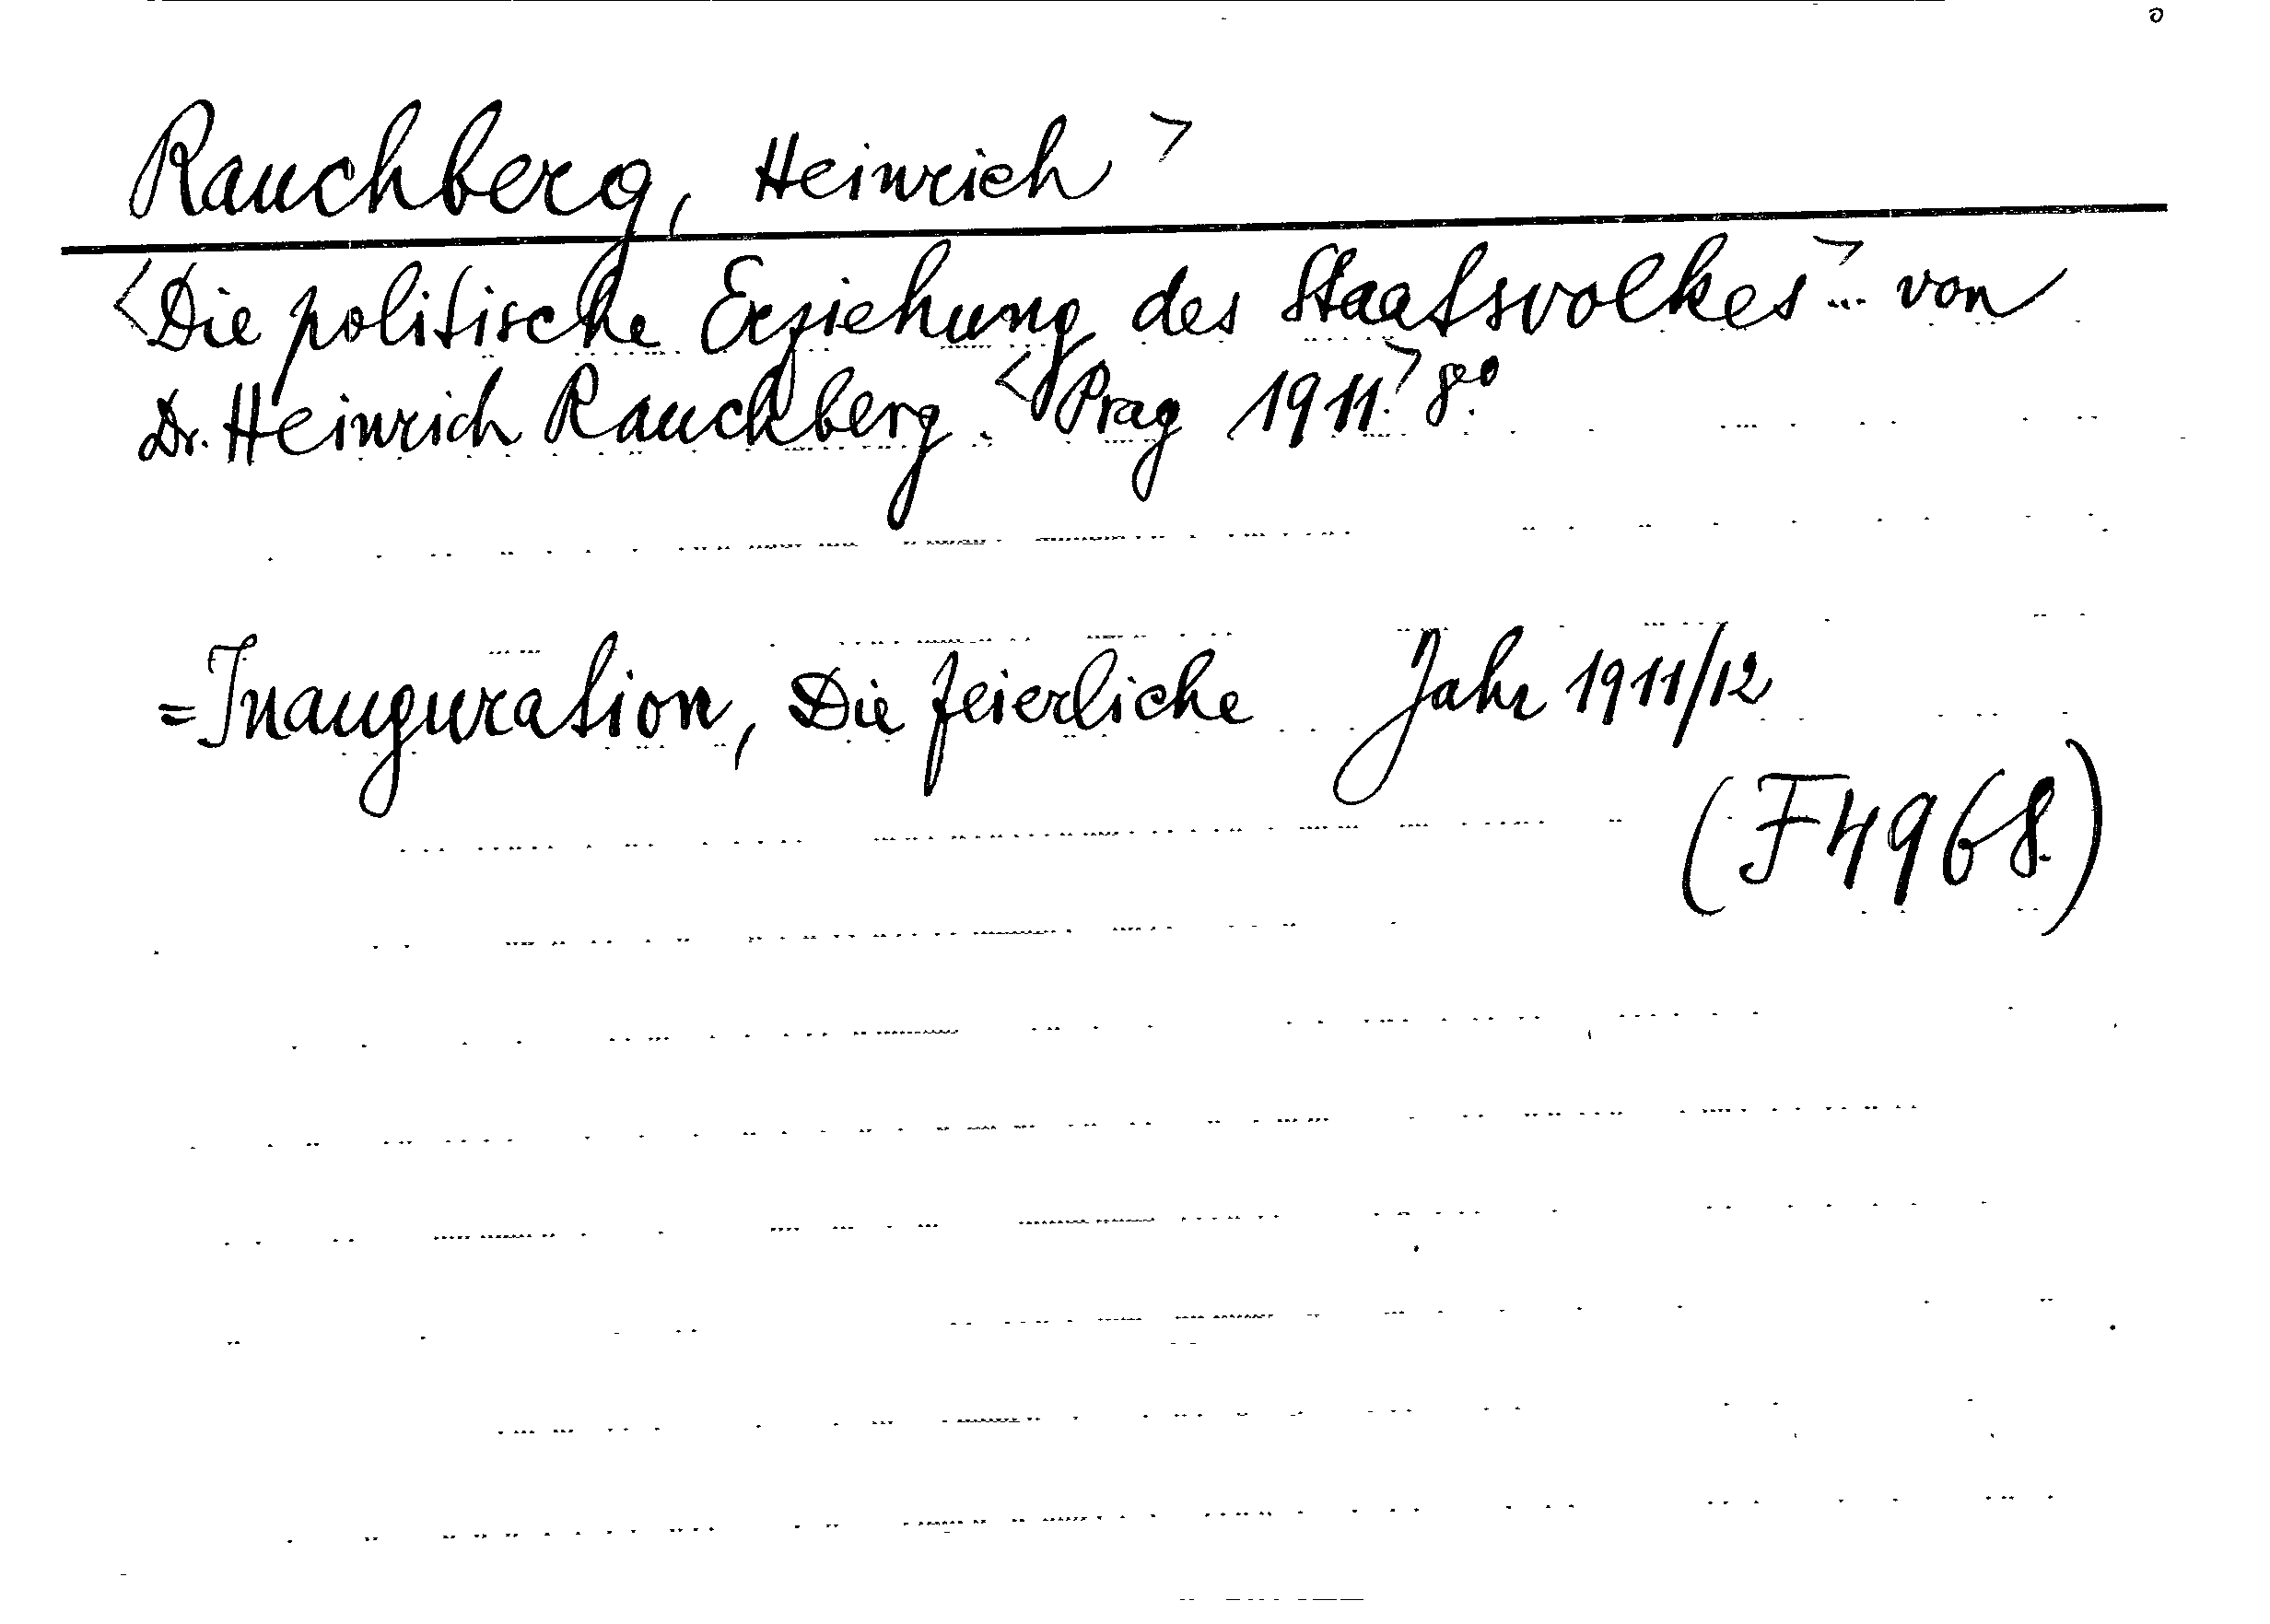 Rauchberg, Heinrich >
<Die politische Erziehung des Staatsvolkes> ... von
Dr. Heinrich Rauchberg. <Prag 1911.> 8°.
=Inauguration, Die feierliche Jahr 1911/12
(F4968.)